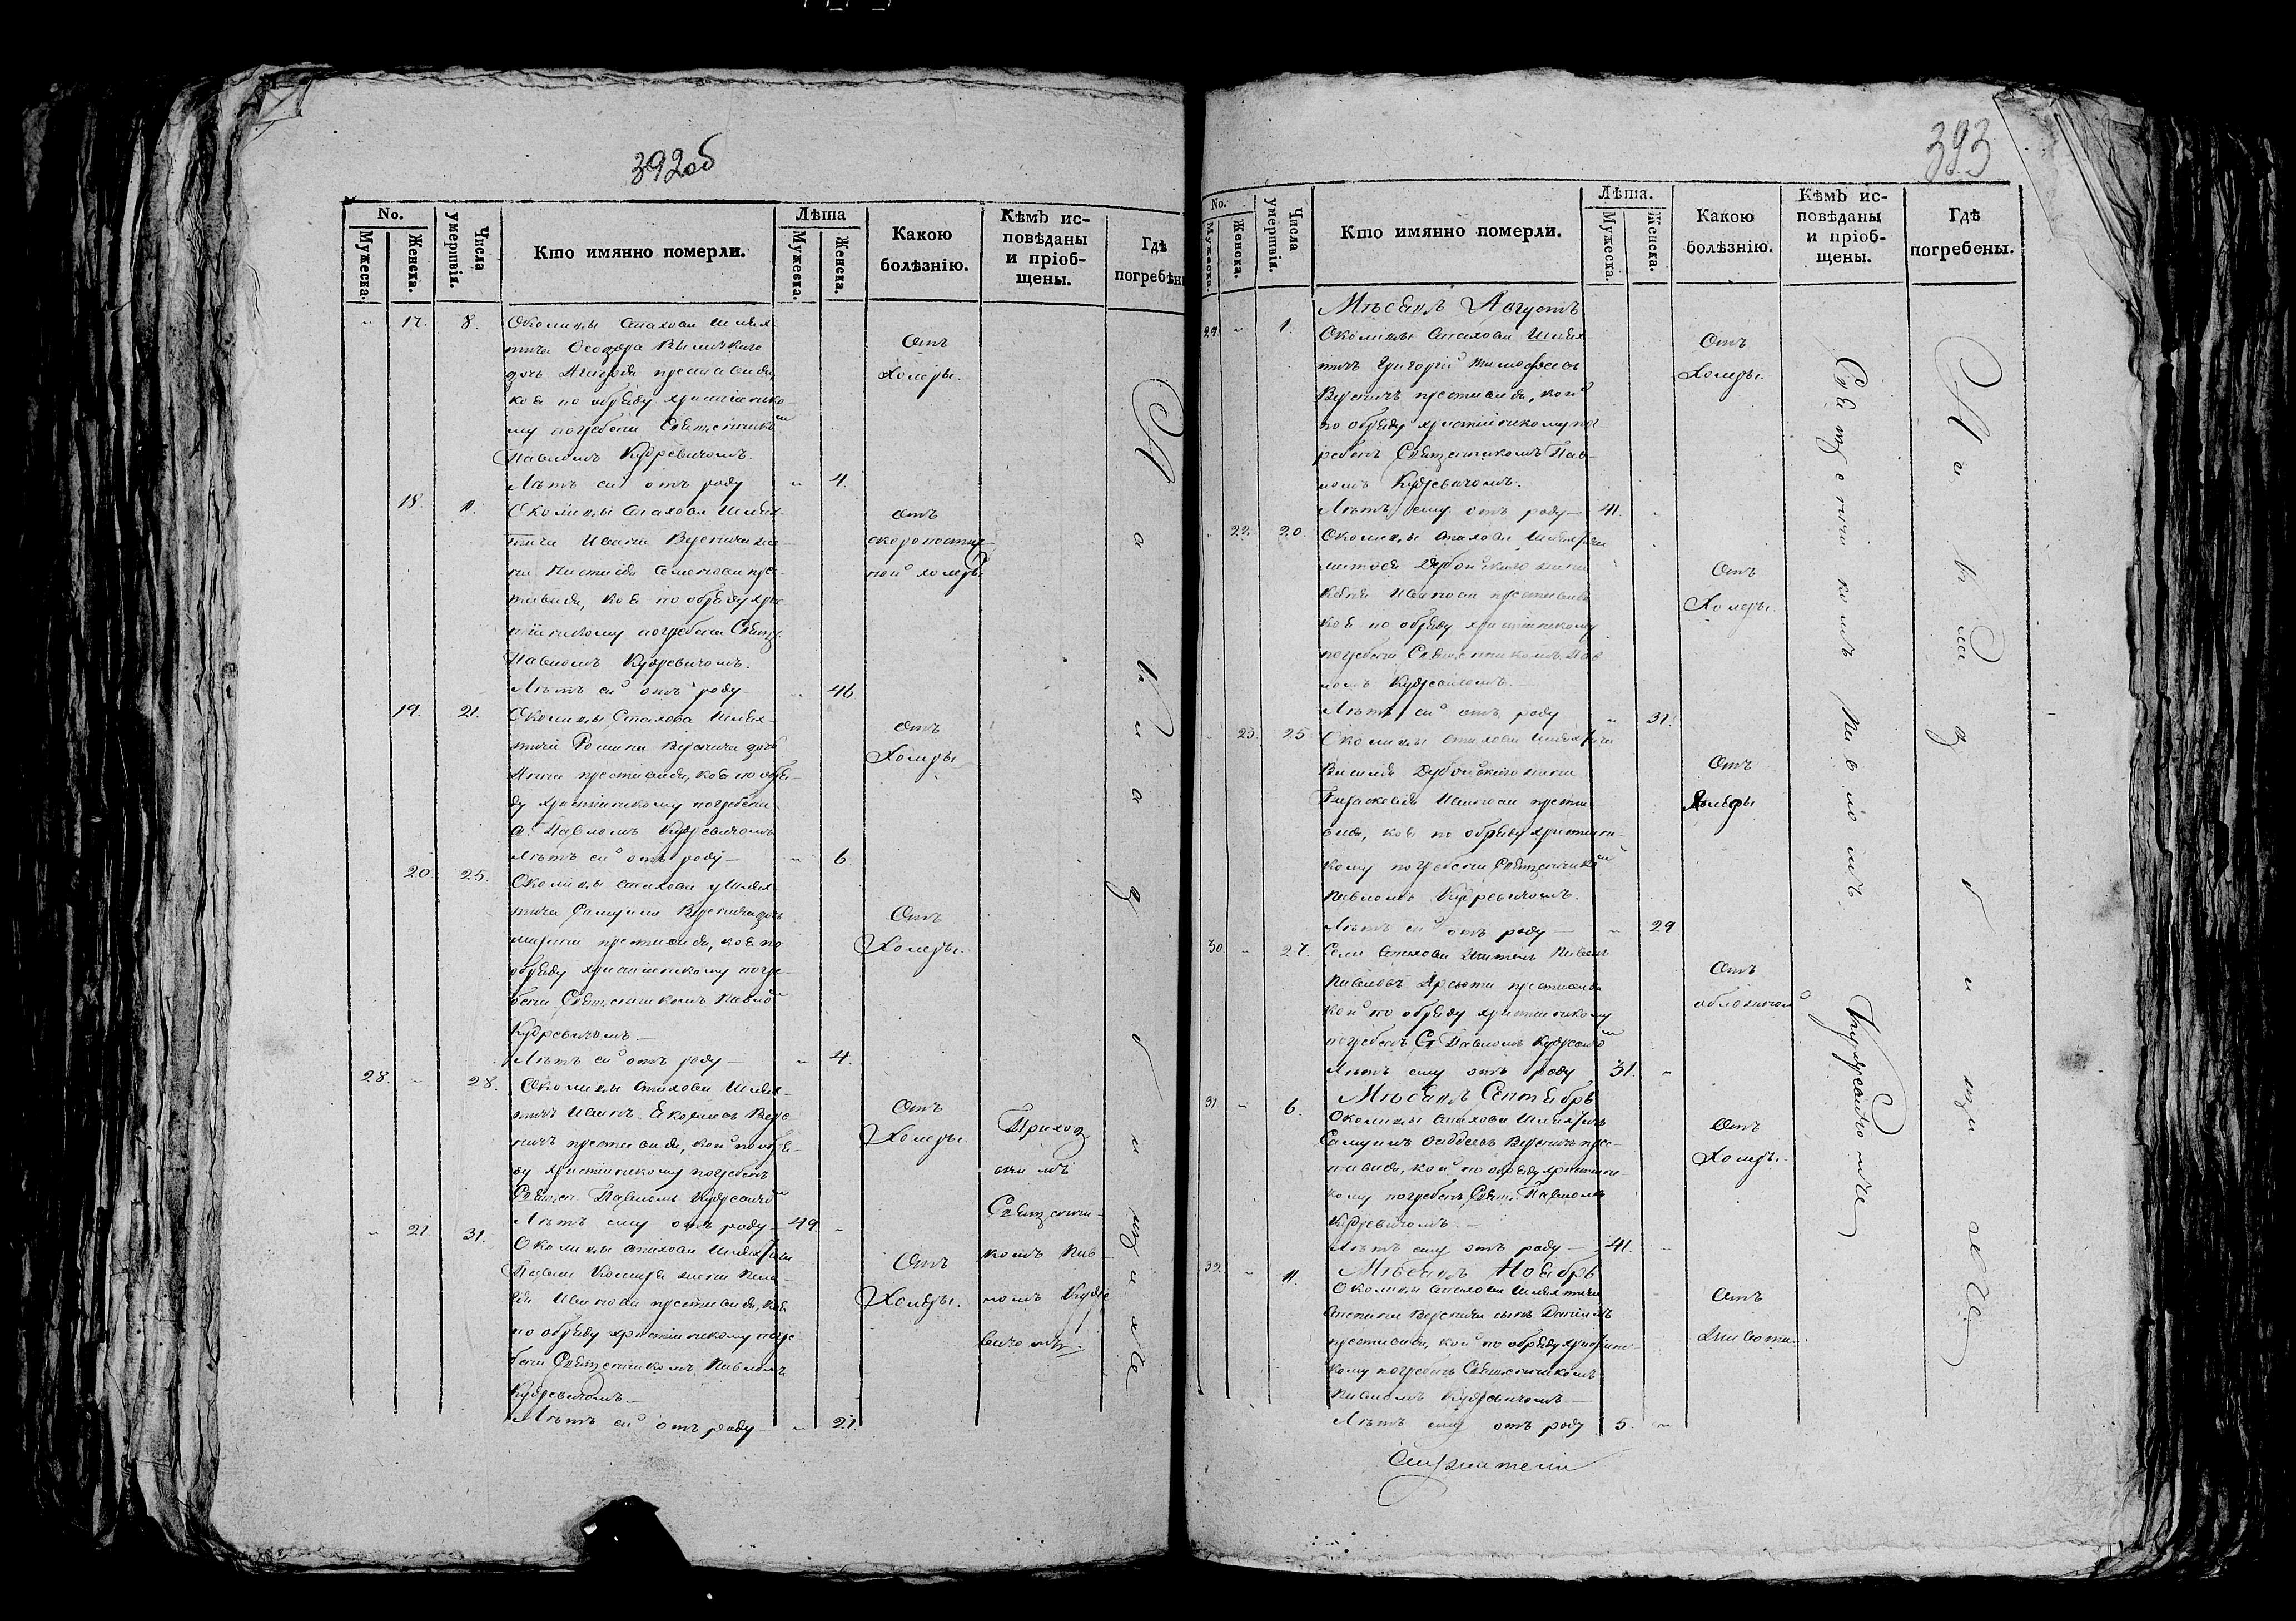 392об
No.
Мужеска.
Женска.
Числа умертвія.
Кто имянно померли.
Лѣта
Мужеска.
Женска.
Какою болѣзнію.
Кѣмъ ис-
повѣданы
и пріоб-
щены.
Гдѣ
погребены
17. 8. Околицы Стахова Шлях-
тича Ѳеодора
дочь преставися,
коя по обряду христіянско
му погребена Священником
Павломъ Кудревичомъ.
Лѣтъ ей отъ роду 4.
Отъ
Холеры.
18. 11. Околицы Стахова Шлях-
тича Ивана Вереничa же-
на Настасія Семенова пре-
ставися, коя по обряду хрис-
тіянскому погребена Свящ.
Павломъ Кудревичомъ.
Лѣтъ ей отъ роду 46
отъ
скоропостиж-
ной холеры
19. 21. Околицы Стахова Шлях-
тича Романа Веренича дочь
Анна преставися, коя по обря-
ду христіянскому погребена
Павломъ Кудревичомъ
Лѣтъ ей отъ роду 6.
отъ
Холеры
20. 25. Околицы Стахова у Шлях-
тича Самуила Веренича дочь
Марина преставися, коя по
обряду христіянскому погре-
бена Священникомъ Павлом
Кудревичомъ
Лѣтъ ей отъ роду 4.
Отъ
Холеры.
28. 28. Околицы Стахова Шлях-
тичъ Иванъ Вере
ничъ преставися, кой по обря-
ду христіянскому погребенъ
Священ. Павломъ Кудревичом
Лѣтъ ему отъ роду 49.
Отъ
Холеры.
Приход
скимъ
Священни-
комъ Пав-
ломъ Кудре
вичомъ.
21 31. Околицы Стахова Шляхтича
Павла жена
Иванова преставися, коя
по обряду христіянскому погре
бена Священникомъ Павломъ
Кудревичомъ
Лѣтъ ей отъ роду 21.
Отъ
Холеры.
На кладбищи же
393
No.
Мужеска.
Женска.
Числа умертвія.
Кто имянно померли.
Лѣта.
Мужеска.
Женска.
Какою
болѣзнію.
Кѣмъ ис-
повѣданы
и пріоб-
щены.
Гдѣ
погребены.
Мѣсяцъ Августъ
29. 1. Околицы Стахова Шлях
тичъ Григорій Тимофеевъ
Вереничъ преставися, кой
по обряду христіянскому пог
ребенъ Священникомъ Пав-
ломъ Кудревичомъ.
Лѣтъ ему отъ роду 41.
Отъ
Холеры.
22. 20. Околицы Стахова Шляхтича
Дубойскаго жена
Иванова преставися
коя по обряду христіянскому
погребена Священникомъ Пав
ломъ Кудревичомъ.
Лѣтъ ей отъ роду 31.
Отъ
Холеры.
23. 25 Околицы Стахова Шляхтича
Василія Дубойскаго жена
Параскевія Иванова преста
вися, коя по обряду христіянс-
кому погребена Священником
Павломъ Кудревичомъ.
Лѣтъ ей отъ роду 29
Отъ
Холеры
30. 27. Села Стахова Житель Павелъ
Павловъ преставися
кой по обряду христіянскому
погребенъ Св. Павломъ Кудревичом
Лѣтъ ему отъ роду 31.
Отъ
Мѣсяцъ Сентябрь
31 6. Околицы Стахова Шляхтичъ
Самуилъ Фаддеевъ Вереничъ прес-
тавися, кой по обряду христіянс-
кому погребенъ Свящ. Павломъ
Кудревичомъ.
Лѣтъ ему отъ роду 41.
Отъ
Холеры.
Мѣсяцъ Ноябрь
32. 11. Околицы Стахова Шляхтича
Веренича сынъ Даніилъ
преставися, кой по обряду христіянс-
кому погребенъ Священникомъ
Павломъ Кудревичомъ
Лѣтъ ему отъ роду 5.
Отъ
Священникомъ Павломъ Кудревичомъ
На кладбищи же